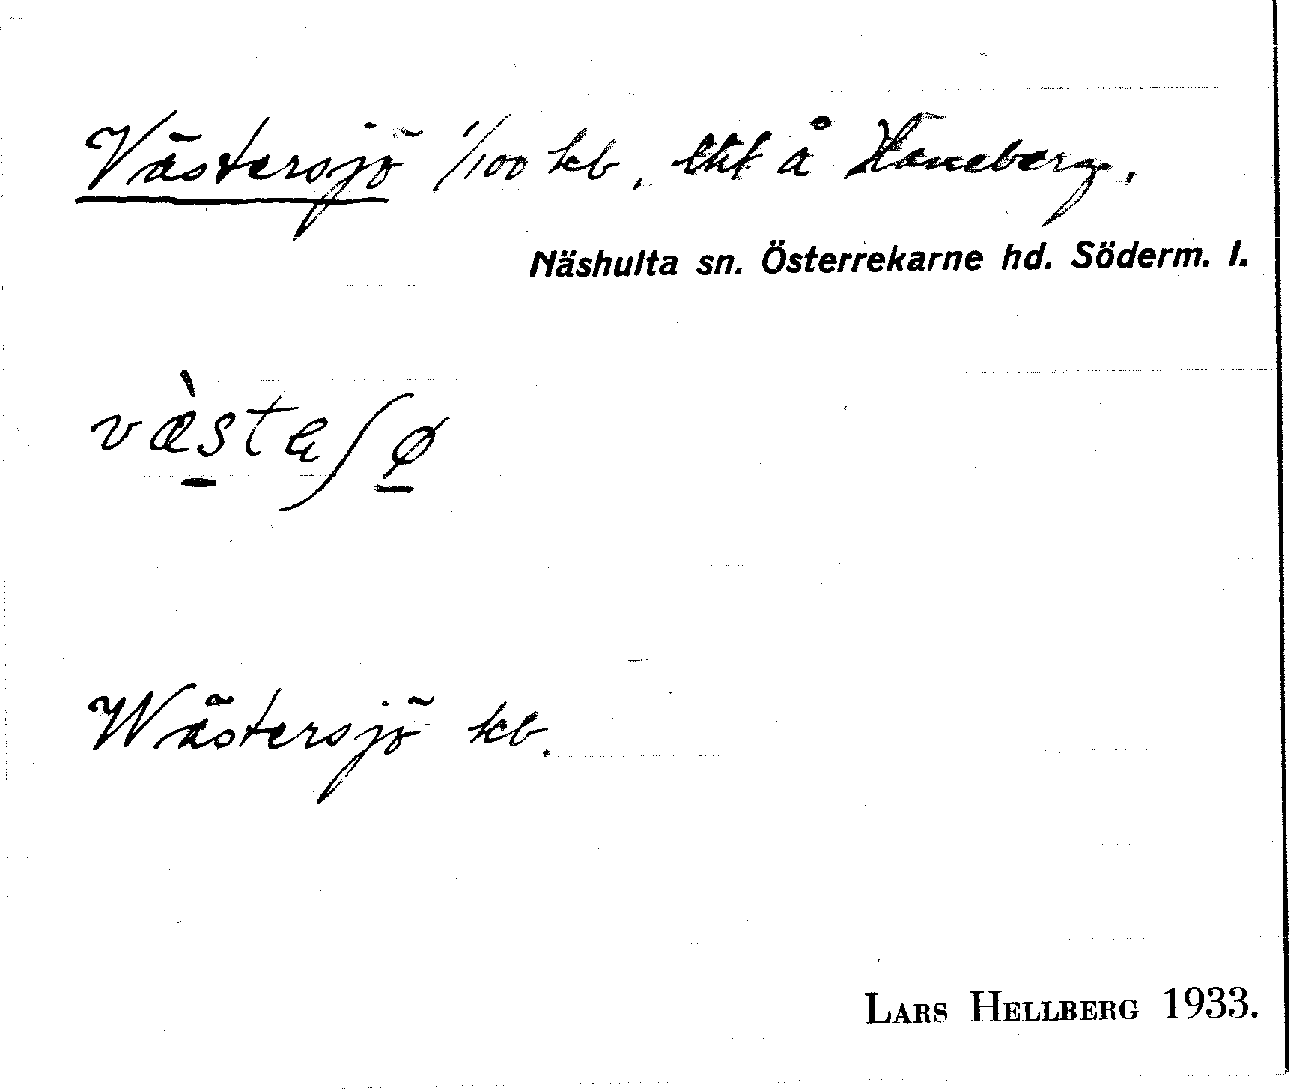 Västersjö 1/100 kb, lht å Haneberg,
Näshulta sn. Österrekarne hd. Söderm. l.
væ̀staʃø
Wästersjö kb.
LARS HELLBERG 1933.